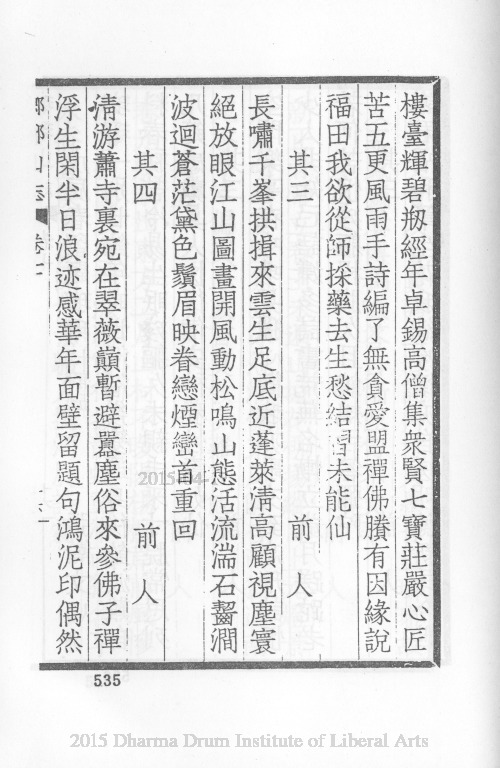 樓臺輝碧剏經年卓錫高僧集衆賢七寶莊嚴心匠
苦五更風雨手詩編了無貪愛盟禪佛賸有因緣說
福田我欲從師採藥去生愁結習未能仙
其三 前人
長嘯千峯拱揖來雲生足底近蓬萊淸高顧視塵寰
絕放眼江山圖畫開風動松鳴山態活流湍石齧澗
波迴蒼茫黛色鬚眉映眷戀煙巒首重回
其四 前人
淸游蕭寺裏宛在翠薇巔暫避囂塵俗來參佛子禪
浮生閑半日浪迹感華年面壁留題句鴻泥印偶然
山志 卷七
535
2015-04-
2015 Dharma Drum Institute of Liberal Arts